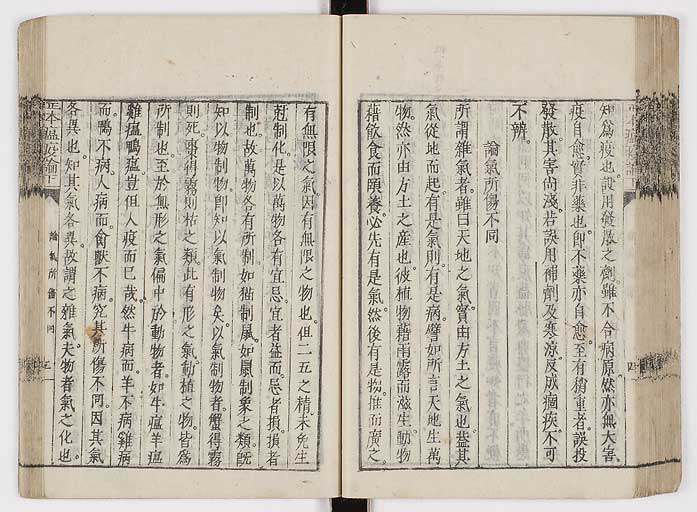 知爲疫也設用發散之劑雖不合病原然亦無大害
疫自愈實非藥也卽不藥亦自愈至有稍重者誤投
發散其害尚淺若誤用補劑及寒涼反成痼疾不可
不辨
論氣所傷不同
所謂雜氣者雖曰天地之氣實由方土之氣也蓋其
氣從地而起有是氣則有是病譬如所言天地生萬
物然亦由方土之產也彼植物藉雨露而滋生動物
藉飲食而頤養必先有是氣然後有是物推而廣之
有無限之氣因有無限之物也但二五之精未免生
尅制化是以萬物各有宜忌宜者益而忌者損損者
制也故萬物各有所制如猫制鼠如鼠制象之類旣
知以物制物卽知以氣制物矣以氣制物者蟹得霧
則死棗得霧則枯之類此有形之氣動植之物皆爲
所制也至於無形之氣偏中於動物者如牛瘟羊瘟
雞瘟鴨瘟豈但人疫而已哉然牛病而羊不病雞病
而鴨不病人病而禽獸不病究其所傷不同因其氣
各異也知其氣各異故謂之雜氣夫物者氣之化也
論氣所傷不同